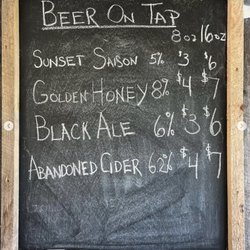 BEER ON TAP
8oz 16oz
SUNSET SAISON 5% $3 $6
GOLDEN HONEY 8% $4 $7
BLACK ALE 6% $3 $6
ABANDONED CIDER 6.2% $4 $7